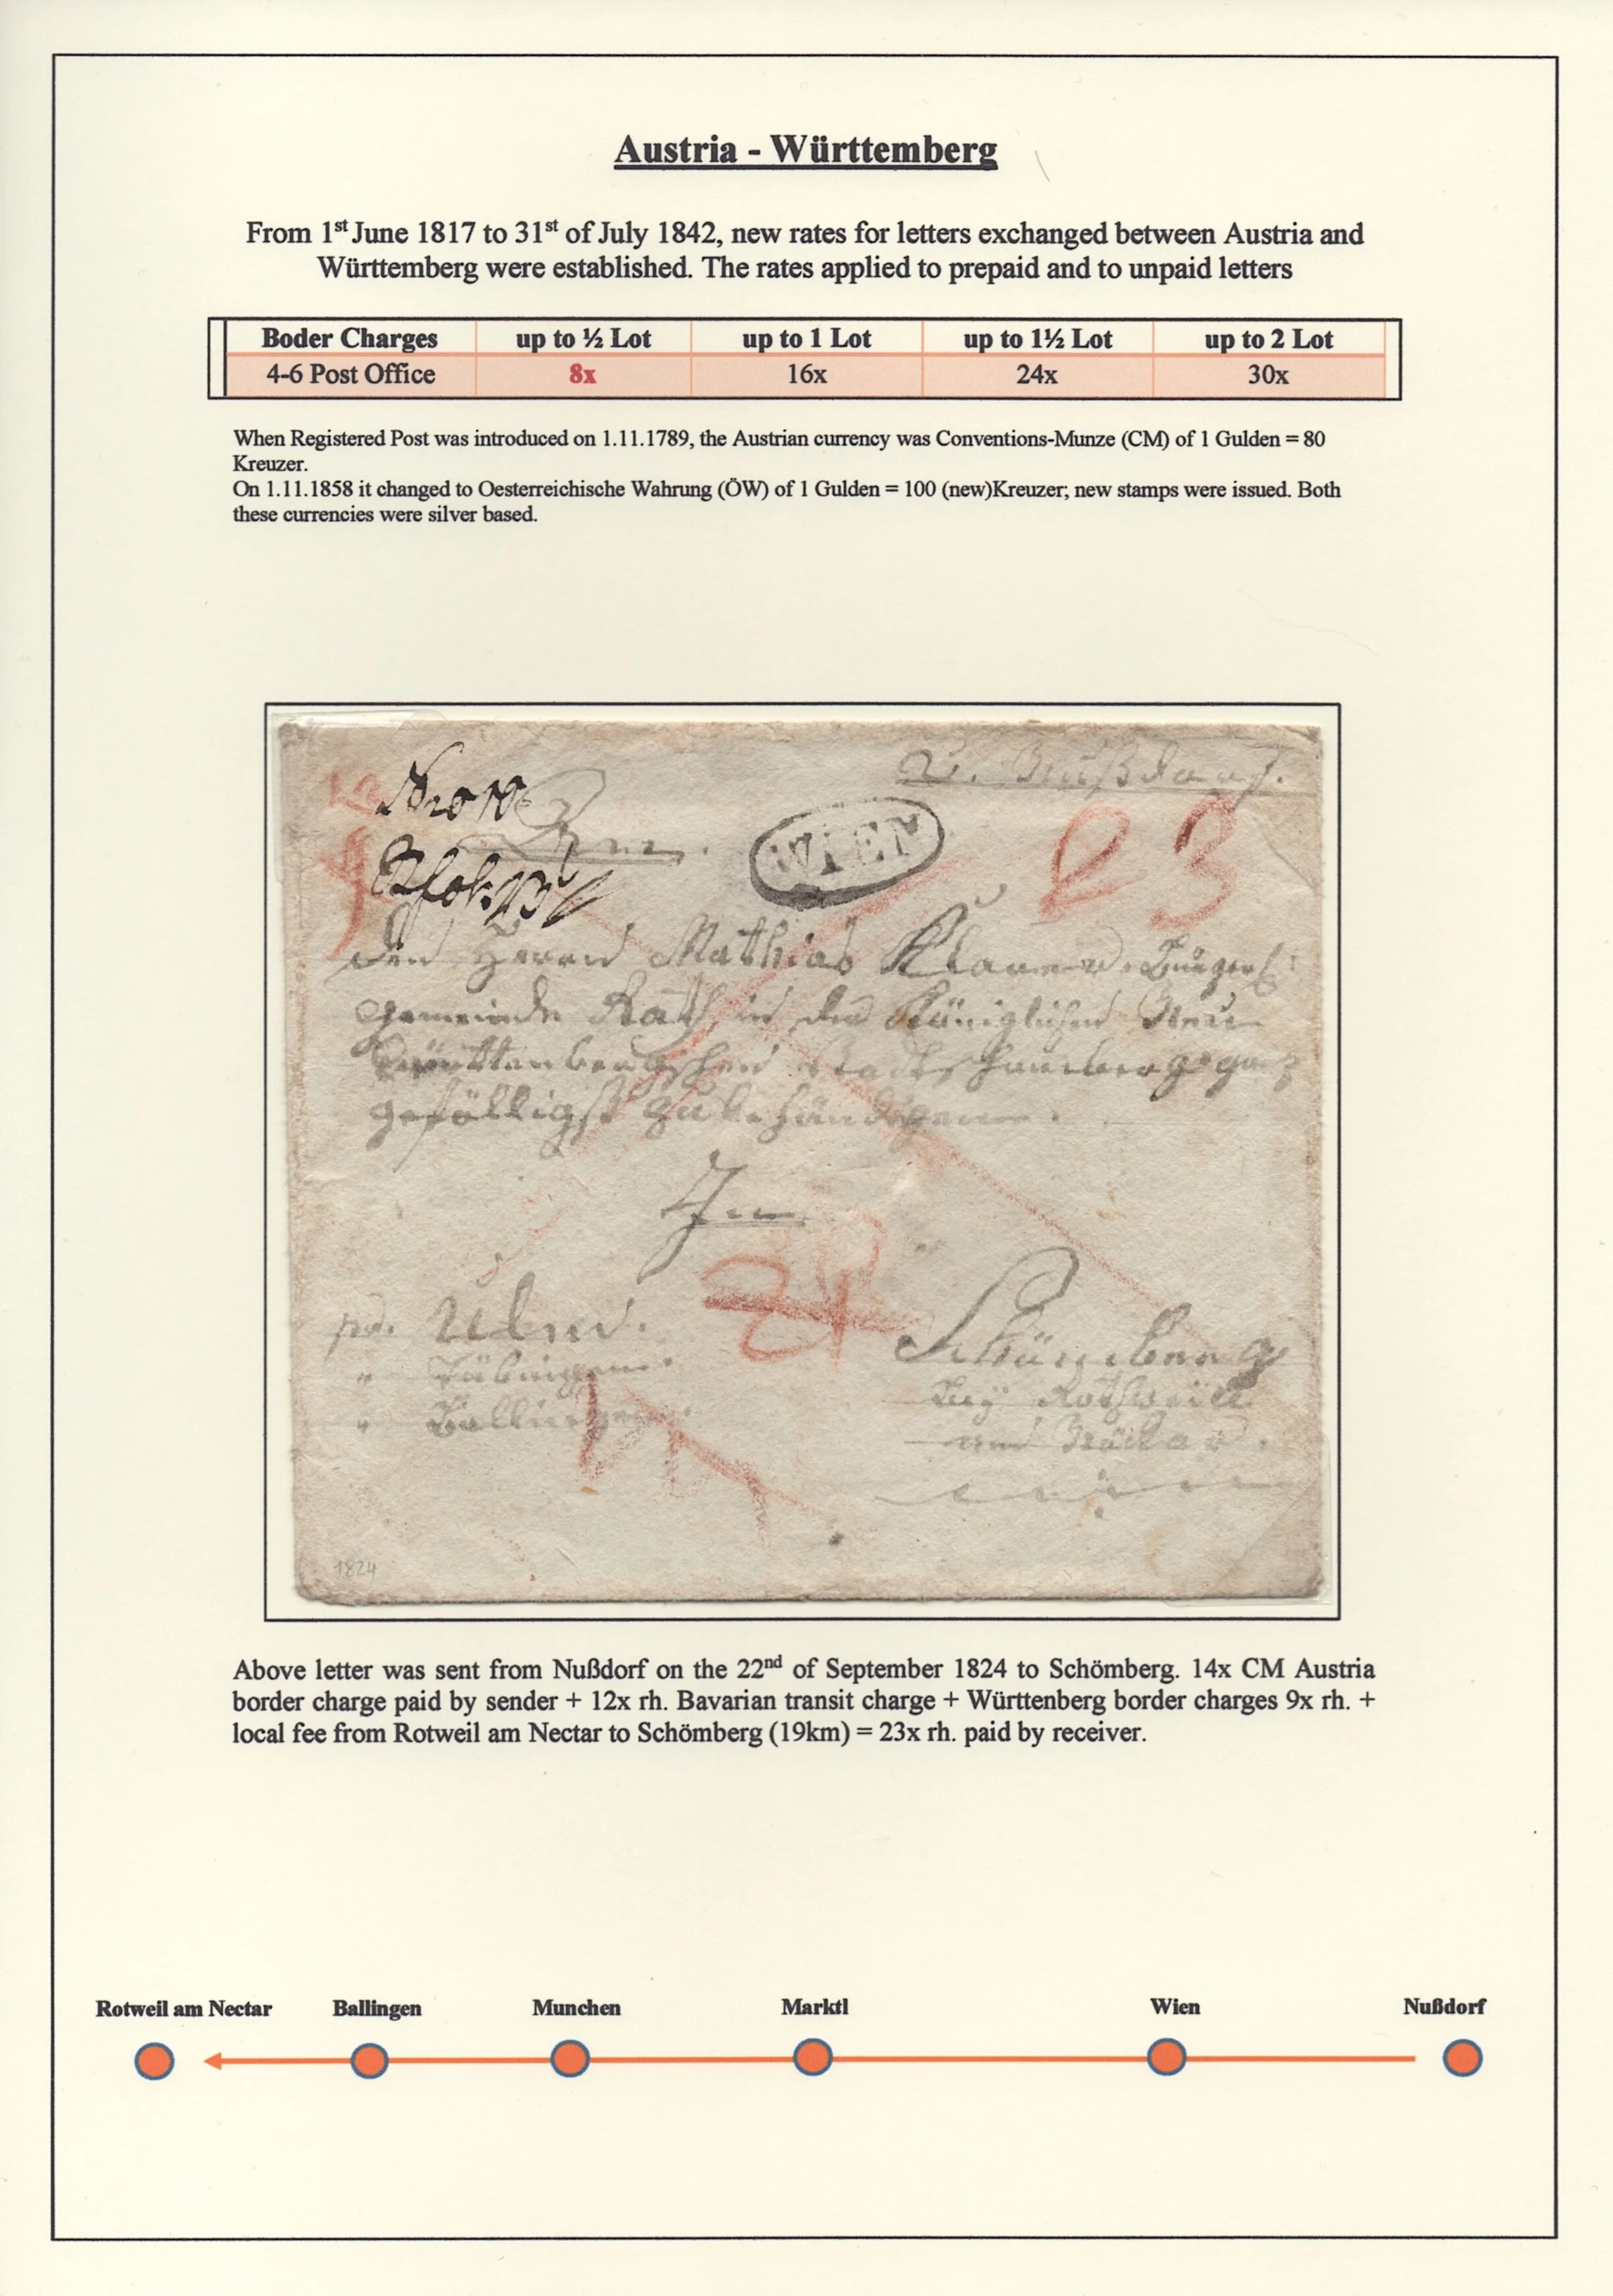 Austria - Württemberg
From 1st June 1817 to 31st of July 1842, new rates for letters exchanged between Austria and
Württemberg were established. The rates applied to prepaid and to unpaid letters
Boder Charges up to ½ Lot up to 1 Lot up to 1½ Lot up to 2 Lot
4-6 Post Office 8x 16x 24x 30x
When Registered Post was introduced on 1.11.1789, the Austrian currency was Conventions-Munze (CM) of 1 Gulden = 80
Kreuzer.
On 1.11.1858 it changed to Oesterreichische Wahrung (ÖW) of 1 Gulden = 100 (new)Kreuzer; new stamps were issued. Both
these currencies were silver based.
V. Nußdorf.
WIEN
23
Den Herrn Mathias
gemeinde Rath in der Königlichen
gefälligst zu behändigen.
In
pr. Ulm.
" Tübingen.
" Ballingen.
Schömberg
bey Rothweill
am Näckar.
1824
Above letter was sent from Nußdorf on the 22nd of September 1824 to Schömberg. 14x CM Austria
border charge paid by sender + 12x rh. Bavarian transit charge + Württenberg border charges 9x rh. +
local fee from Rotweil am Nectar to Schömberg (19km) = 23x rh. paid by receiver.
Rotweil am Nectar Ballingen Munchen Marktl Wien Nußdorf